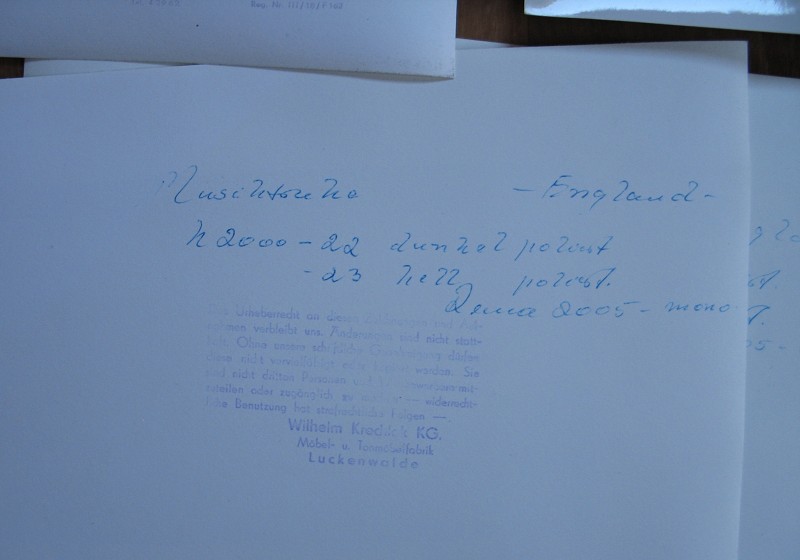 Reg. Nr. III/18/F 168
Musiktruhe -England-
K 2000 - 22 dunkel poliert
- 23 hell poliert.
Rema 2005 - mono
Das Urheberrecht an diesen Zeichnungen und Auf-
nahmen verbleibt uns. Änderungen sind nicht statt-
haft. Ohne unsere schriftliche Genehmigung dürfen
diese nicht vervielfältigt oder werden. Sie
sind nicht dritten Personen und
zustellen oder zugänglich zu — widerrecht-
liche Benutzung hat strafrechtliche Folgen —
Wilhelm Kreddick KG.
Möbel- u. Tonmöbelfabrik
Luckenwalde